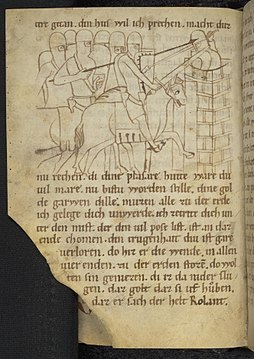 tre getan. din hus wil ich prechen. macht duz
nu rechen. di dine phaffe. hutte ware du
vil mare. nu bistu worden stille. dine gol
de garwen bille. muzen alle zu der erde
ich gelege dich unwerde. ich zerter dich un
ter den mist. der den vil pose list. ist in daz
ende chomen. din trugenhait du ist gare
verloren. do hiz er die wende. in allen
vier enden. zu der erden storen. do wol
ten sin generen. di er da nider slu
gen. daz gobt daz si uf huben.
daz er sach der helt Rolant.